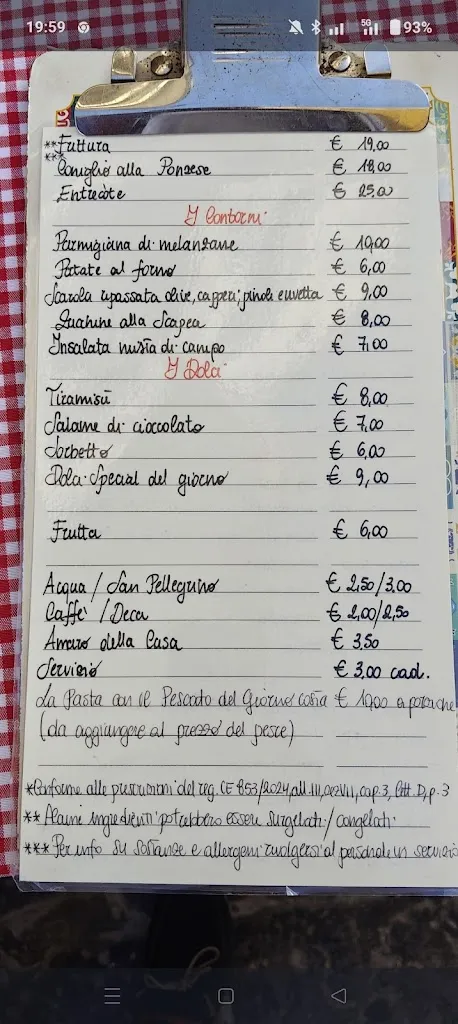 19:59 5G 93%
**Frittura € 19,00
***
Coniglio alla Ponzese € 18,00
Entrecôte € 25,00
I Contorni
Parmigiana di melanzane € 10,00
Patate al forno € 6,00
Scarola ripassata olive, capperi, pinoli e uvetta € 9,00
Zucchine alla Scapece € 8,00
Insalata mista di campo € 7,00
I Dolci
Tiramisù € 8,00
Salame di cioccolato € 7,00
Sorbetto € 6,00
Dolci Special del giorno € 9,00
Frutta € 6,00
Acqua / San Pellegrino € 2,50/3,00
Caffè / Deca € 2,00/2,50
Amaro della Casa € 3,50
Servizio € 3,00 cad.
La Pasta con il Pescato del Giorno costa € 10,00 a porzione
(da aggiungere al prezzo del pesce)
*Conforme alle prescrizioni del reg. CE 853/2024, all. III, sez VII, cap. 3, lett. D, p. 3
** Alcuni ingredienti potrebbero essere surgelati / congelati
*** Per info su sostanze e allergeni rivolgersi al personale in servizio